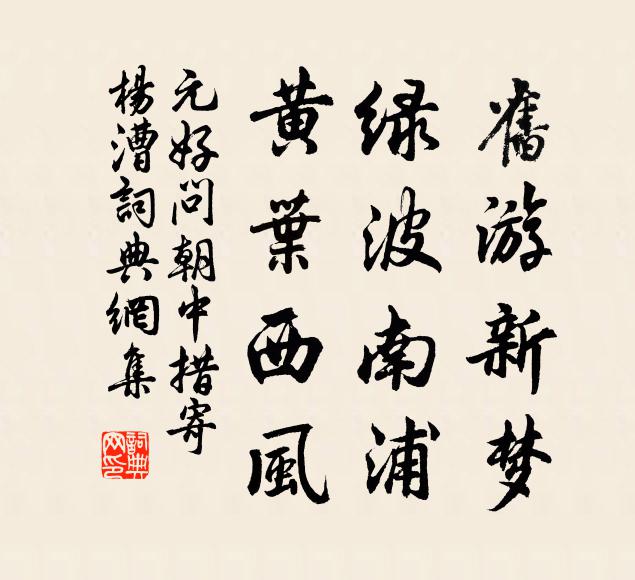 舊游新梦
绿波南浦
黄葉西風
元好問朝中措寄
楊漕詞典網集
詞典網印